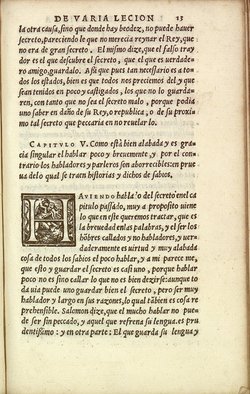 DE VARIA LECION 13
la otra causa, sino que donde hay beodez, no puede hauer
secreto, pareciendo le que no merecia reynar el Rey, que
no era de gran secreto. El mismo dize, que el falso tray
dor es el que descubre el secreto, que el que es verdade-
ro amigo, guardalo. Assi que pues tan necessario es a to-
dos los estados, bien es que todos nos preciemos del, y que
sean tenidos en poco y castigados, los que no lo guarda-
ren, con tanto que no sea el secreto malo, porque podria
uno saber en daño de su Rey, o republica, o de su pro-
ximo tal secreto que peccaria en no reuelarlo.
CAPITULO V. Como està bien alabada y es gra
cia singular el hablar poco y breuemente, y por el contra-
rio los habladores y parleros son aborrecibles: en prue-
ua delo qual se traen historias y dichos de sabios.
HAVIENDO habla'o del secreto en el ca
pitulo passado, muy a proposito uiene
lo que en este queremos tractar, que es
la breuedad en las palabras, y el ser los
hõbres callados y no habladores, y uer-
daderamente es uirtud y muy alabada
cosa de todos los sabios el poco hablar, y a mi parece me,
que esto y guardar el secreto es casi uno, porque hablar
poco no es sino callar lo que no es bien dezirse: aunque to
da uia puede uno guardar bien el secreto, pero ser muy
hablador y largo en sus razones, lo qual tãbien es cosa re
prehensible. Salomon dize, que el mucho hablar no pue-
de ser sin peccado, y aquel que refrena su lengua es pru
dentissimo: y en otra parte: El que guarda su lengua y